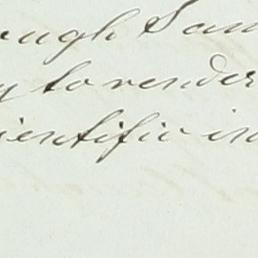 ough Sam
y to render
ientific in